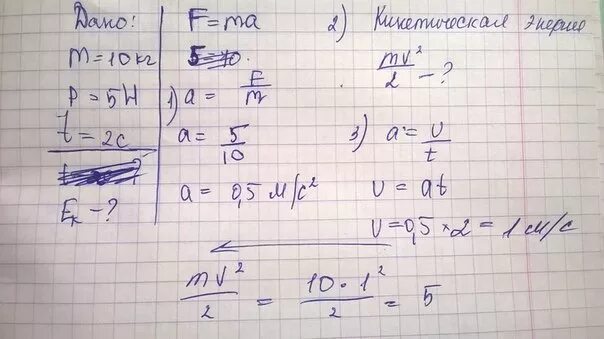 Дано:
m = 10 кг
P = 5 Н
t = 2с
Eк - ?
F = ma
1) a = F/m
a = 5/10
a = 0,5 м/с²
2) Кинетическая энергия
mv²/2 - ?
3) a = v/t
v = at
v = 0,5 × 2 = 1 м/с
mv²/2 = 10 · 1²/2 = 5